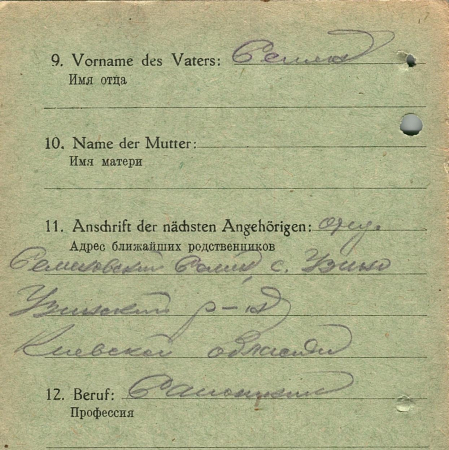 9. Vorname des Vaters: Семен
Имя отца
10. Name der Mutter:
Имя матери
11. Anschrift der nächsten Angehörigen: отец.
Адрес ближайших родственников
с. Узин
Узинский р-н
Киевской области
12. Beruf:
Профессия